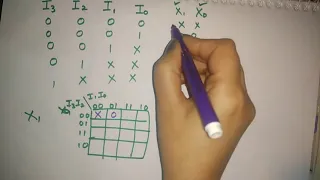 I3 I2 I1 I0 X1 X0
0 0 0 0 X X
0 0 0 1 0
0 0 1 X
0 1 X X
1 X X X
X1 I3I2 I1I0 00 01 11 10
00 X 0
01
11
10